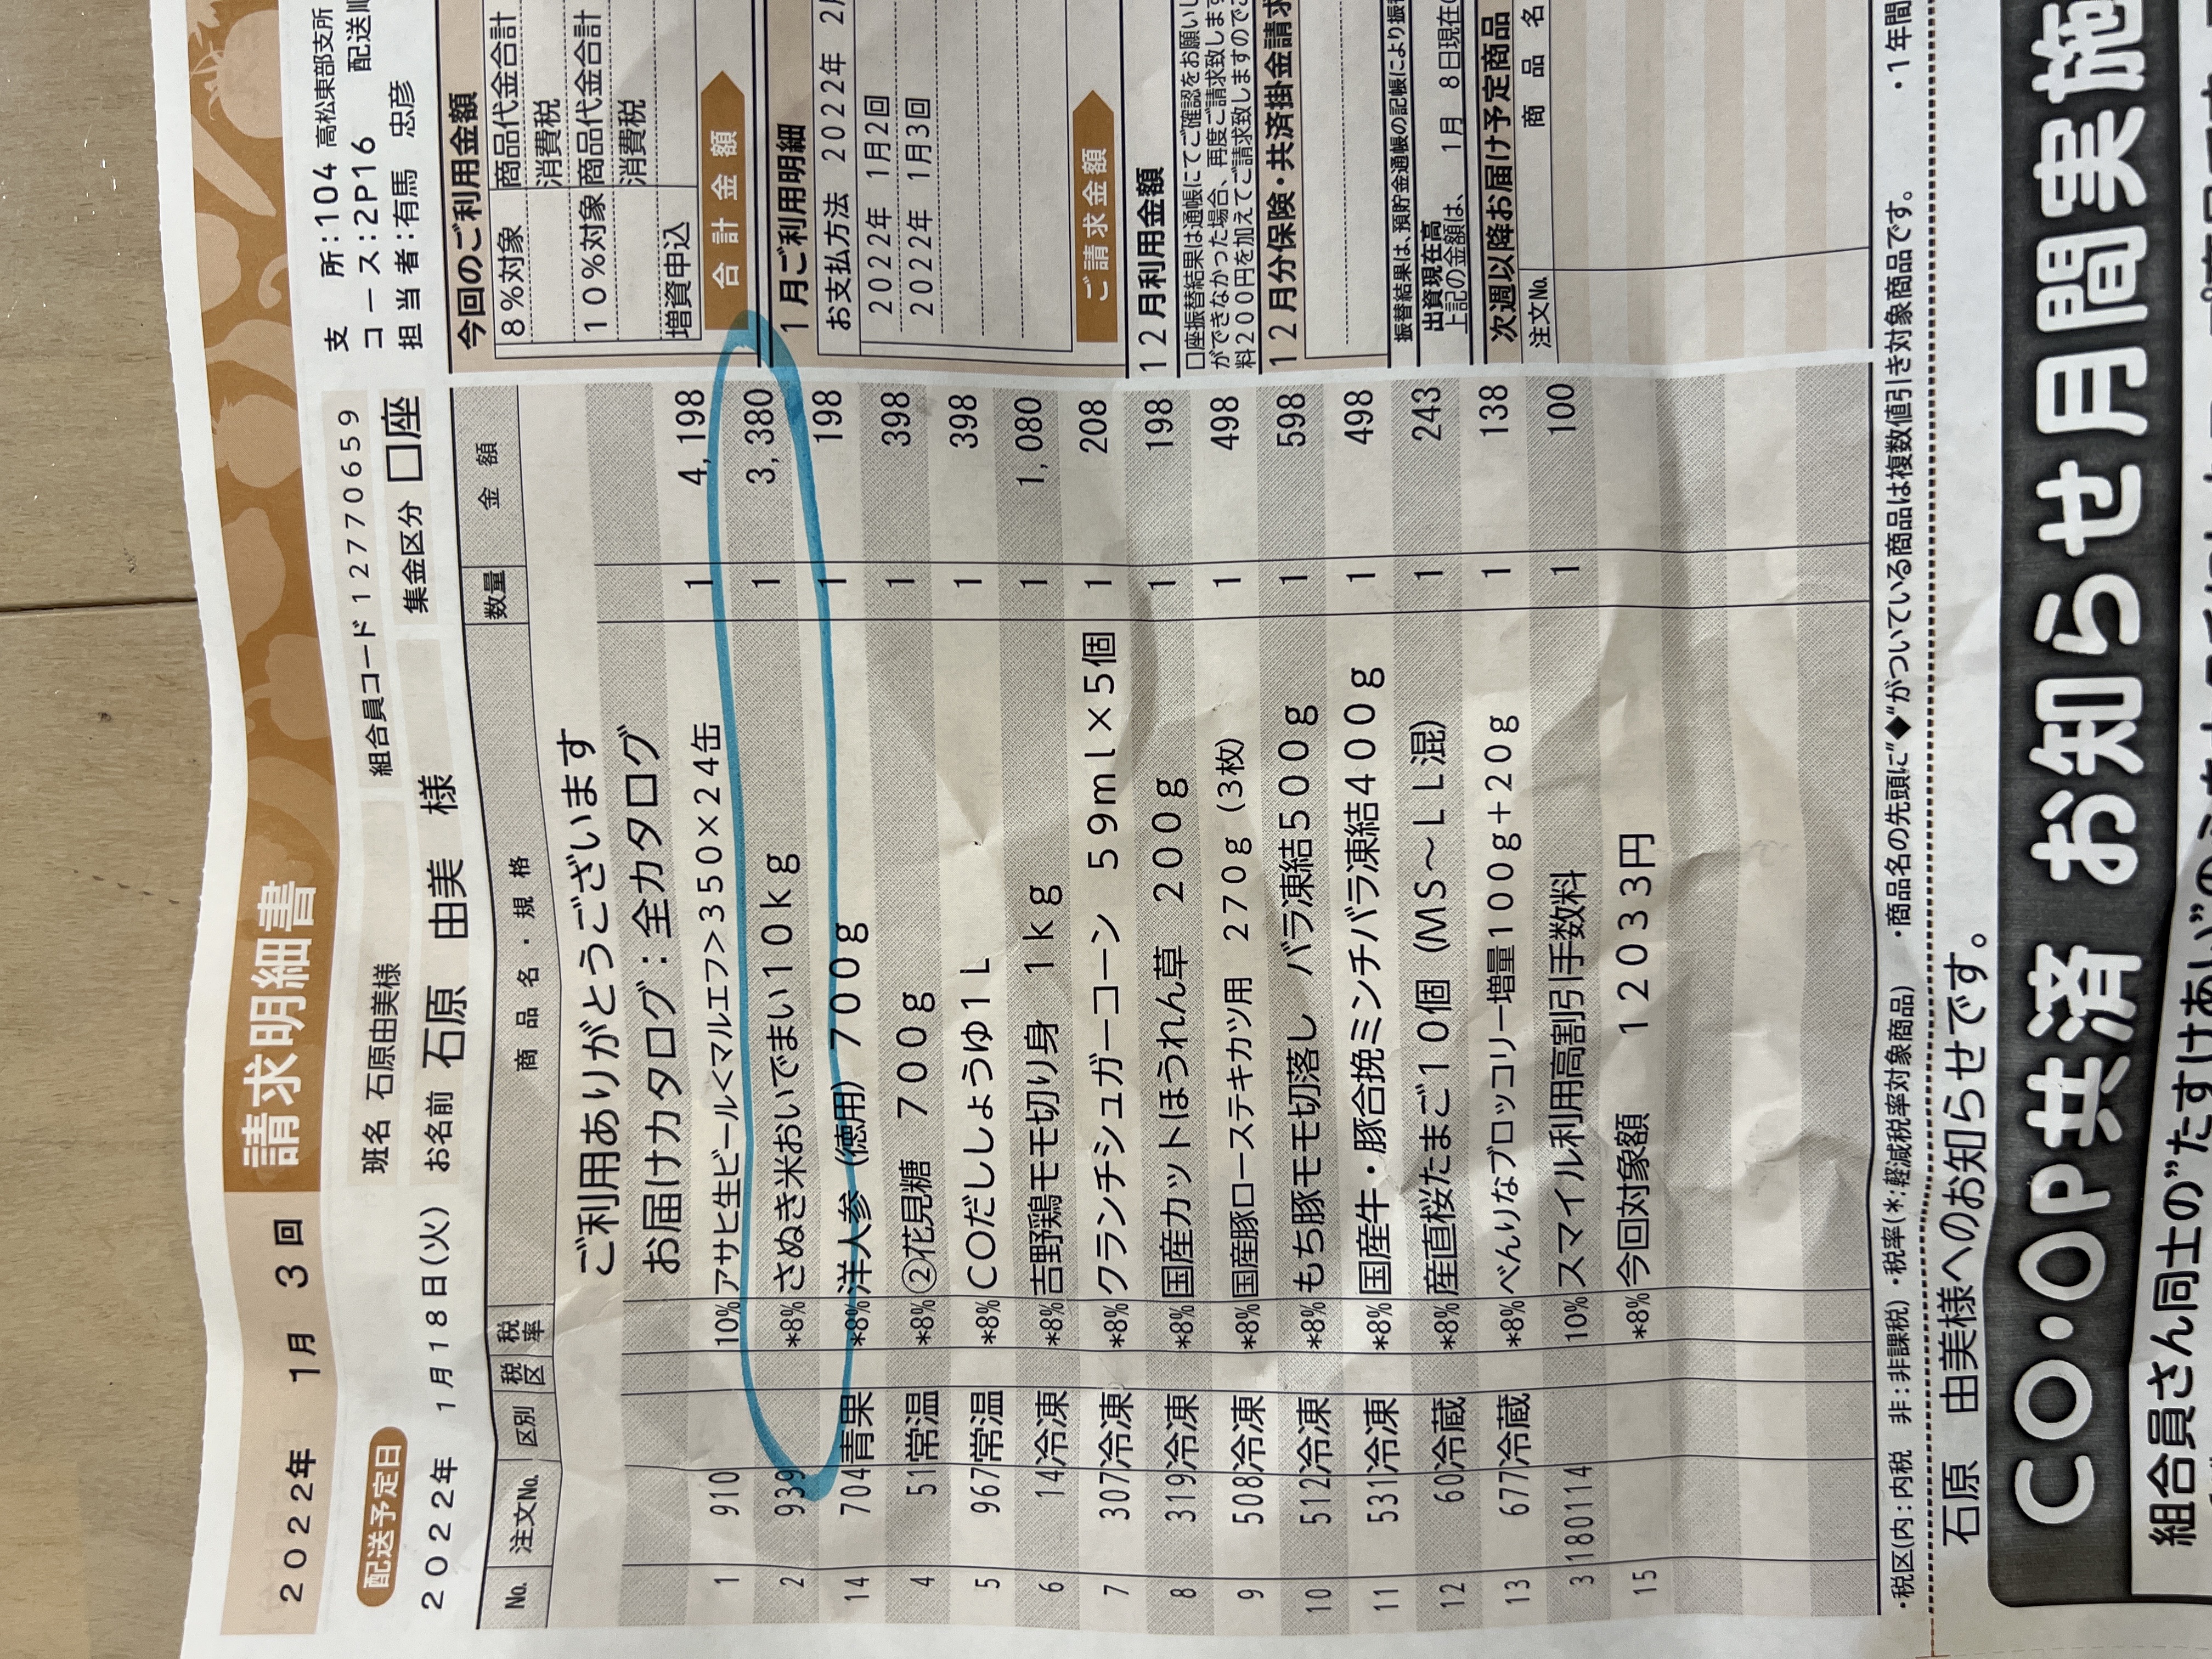 2022年 1月 3回 請求明細書
配送予定日
2022年 1月18日(火)
班名 石原由美様
組合員コード 12770659
お名前 石原 由美 様
集金区分 口座
支 所:104 高松東部支所
コース:2P16 配送順
担当者:有馬 忠彦
No. 注文No. 区別 税区 税率 商品名・規格 数量 金額
ご利用ありがとうございます
お届けカタログ:全カタログ
1 910 10% アサヒ生ビール<マルエフ>350×24缶 1 4,198
2 939 *8% さぬき米おいでまい10kg 1 3,380
14 704 青果 *8% 洋人参(徳用)700g 1 198
4 51 常温 *8% ②花見糖 700g 1 398
5 967 常温 *8% COだししょうゆ1L 1 398
6 14 冷凍 *8% 吉野鶏モモ切り身 1kg 1 1,080
7 307 冷凍 *8% クランチシュガーコーン 59ml×5個 1 208
8 319 冷凍 *8% 国産カットほうれん草 200g 1 198
9 508 冷凍 *8% 国産豚ロースステキカツ用 270g(3枚) 1 498
10 512 冷凍 *8% もち豚モモ切落し バラ凍結500g 1 598
11 531 冷凍 *8% 国産牛・豚合挽ミンチバラ凍結400g 1 498
12 60 冷蔵 *8% 産直桜たまご10個(MS~LL混) 1 243
13 677 冷蔵 *8% べんりなブロッコリー増量100g+20g 1 138
3 180114 10% スマイル利用高割引手数料 1 100
15 *8% 今回対象額 12033円
今回のご利用金額
8%対象 商品代金合計
消費税
10%対象 商品代金合計
消費税
増資申込
合計金額
1月ご利用明細
お支払方法 2022年 2月
2022年 1月2回
2022年 1月3回
ご請求金額
12月利用金額
口座振替結果は通帳にてご確認をお願いし
ができなかった場合、再度ご請求致します
料200円を加えてご請求致しますのでご
12月分保険・共済掛金請求
振替結果は、預貯金通帳の記帳により振替
出資現在高
上記の金額は、 1月 8日現在の
次週以降お届け予定商品
注文No. 商品名
・税区(内:内税 非:非課税)・税率(*:軽減税率対象商品) ・商品名の先頭に"◆"がついている商品は複数値引き対象商品です。 ・1年間
石原 由美様へのお知らせです。
CO・OP共済 お知らせ月間実施
組合員さん同士の"たすけあい"の